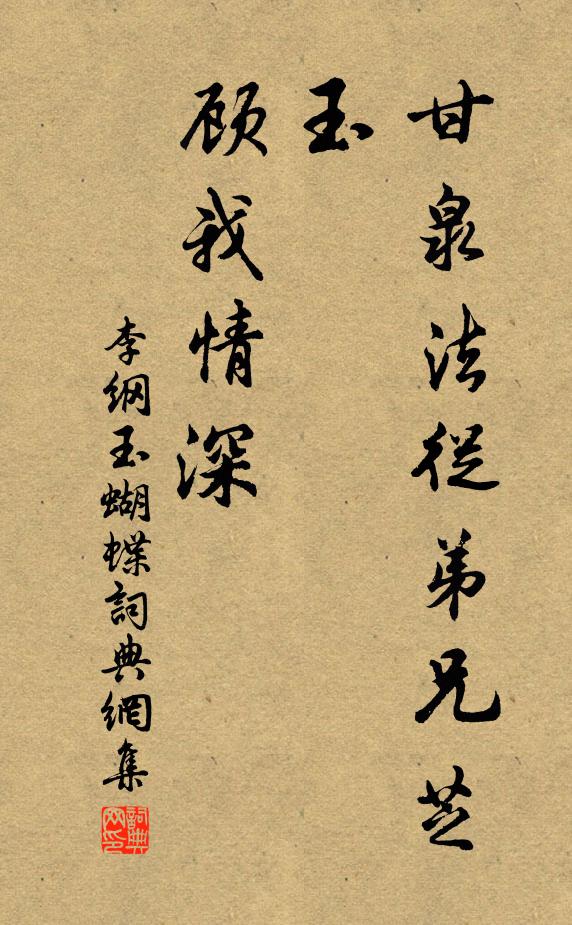 甘泉法從弟兄芝
玉
顾我情深
李纲玉蝴蝶詞典網集
詞典网印